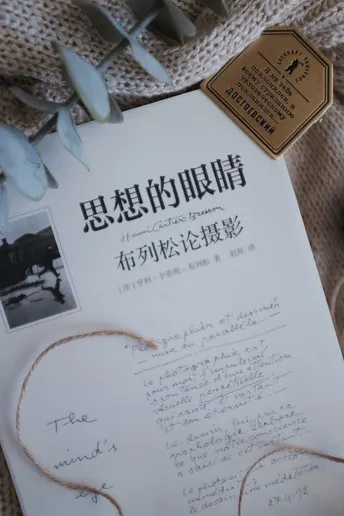 Я не тебе
поклонился, я
всему страданию
человеческому
поклонился.
ДОСТОЕВСКИЙ
思想的眼睛
Henri Cartier-Bresson
布列松论摄影
[法] 亨利·卡蒂埃-布列松 著 赵欣 译
"Photographier et dessiner
mise en parallèle"
La photographie est,
pour moi, l'impulsion
spontanée d'une attention
visuelle perpétuelle
qui saisit l'instant
et son éternité.
Le dessin, lui, par sa
graphologie élabore
ce que notre conscience
a saisi de cet instant.
La photo est une action
immédiate;
le dessin une méditation.
27.4.92
The
mind's
eye